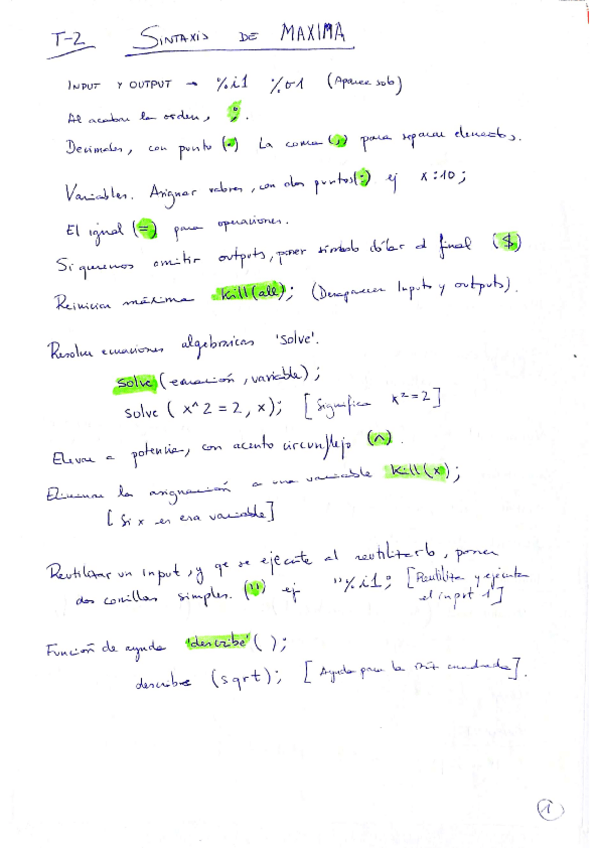 T-2 SINTAXIS DE MAXIMA
INPUT Y OUTPUT → %i1 %o1 (Aparece solo)
Al acabar la orden, ;.
Decimales, con punto (.) La coma (,) para separar elementos.
Variables. Asignar valores, con dos puntos (:) ej x:10;
El igual (=) para operaciones.
Si queremos omitir outputs, poner símbolo dólar al final ($)
Reiniciar máxima kill(all); (Desaparecen Inputs y outputs).
Resolver ecuaciones algebraicas 'solve'.
solve (ecuación, variable);
solve ( x^2 = 2, x); [Significa x²=2]
Elevar a potencia, con acento circunflejo (^).
Eliminar la asignación a una variable kill(x);
[Si x es esa variable]
Reutilizar un input, y qe se ejecute al reutilizarlo, poner
dos comillas simples. ('') ej ''%i1; [Reutiliza y ejecuta
el input 1]
Función de ayuda 'describe'( );
describe (sqrt); [Ayuda para la raíz cuadrada].
1